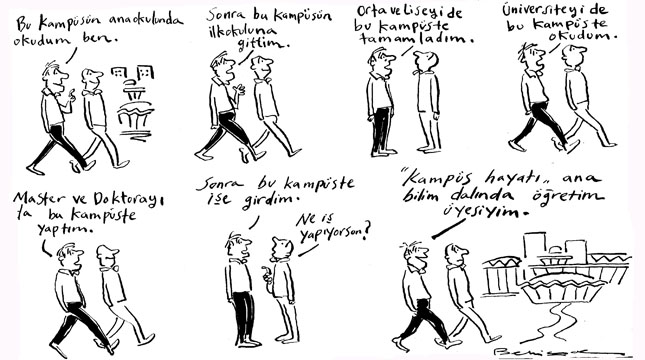 Bu kampüsün anaokulunda
okudum ben.
Sonra bu kampüsün
ilkokuluna
gittim.
Orta ve Liseyi de
bu kampüste
tamamladım.
Üniversiteyi de
bu kampüste
okudum.
Master ve Doktorayı
da bu kampüste
yaptım.
Sonra bu kampüste
işe girdim.
Ne iş
yapıyorsun?
"Kampüs hayatı" ana
bilim dalında öğretim
üyesiyim.